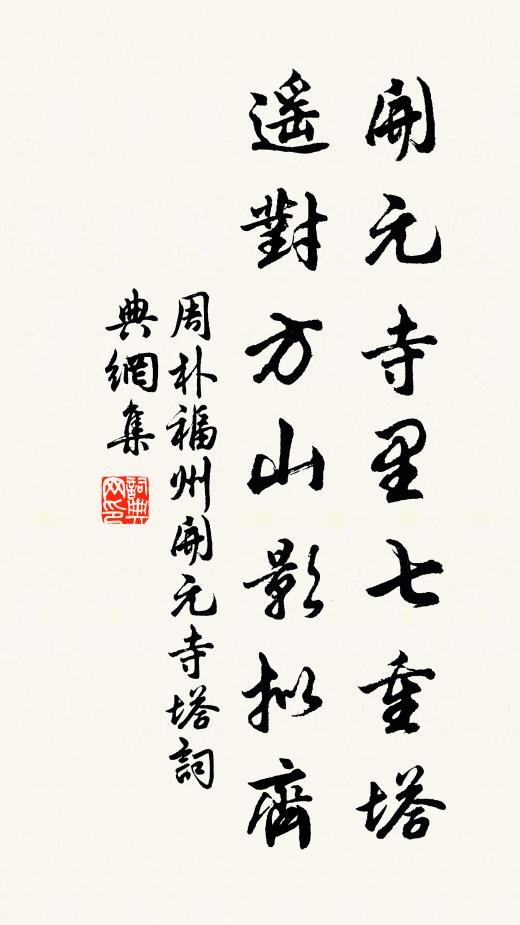 開元寺里七重塔
遥對方山影拟齊
周朴福州開元寺塔詞
典網集
詞典
网印